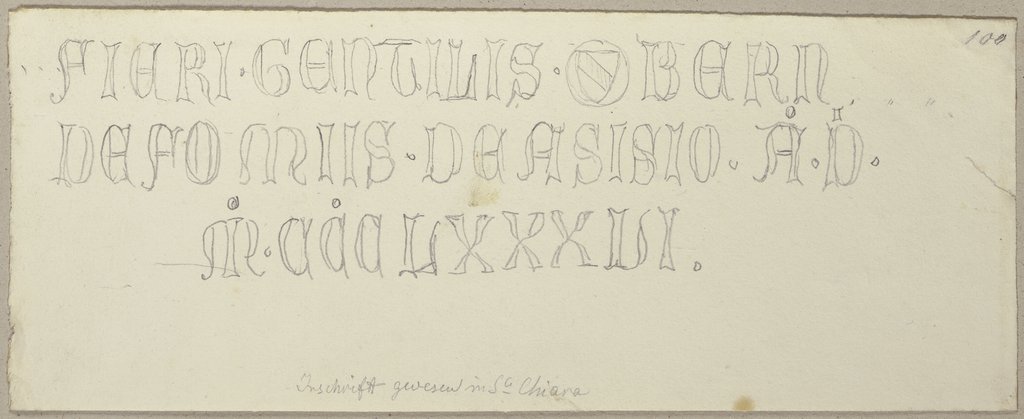 100
FIERI · GENTILIS · BERN
DEFOMIIS · DE ASISIO · A · D ·
M · CCC LXXXVI .
Inschrift gewesen in Sa Chiara